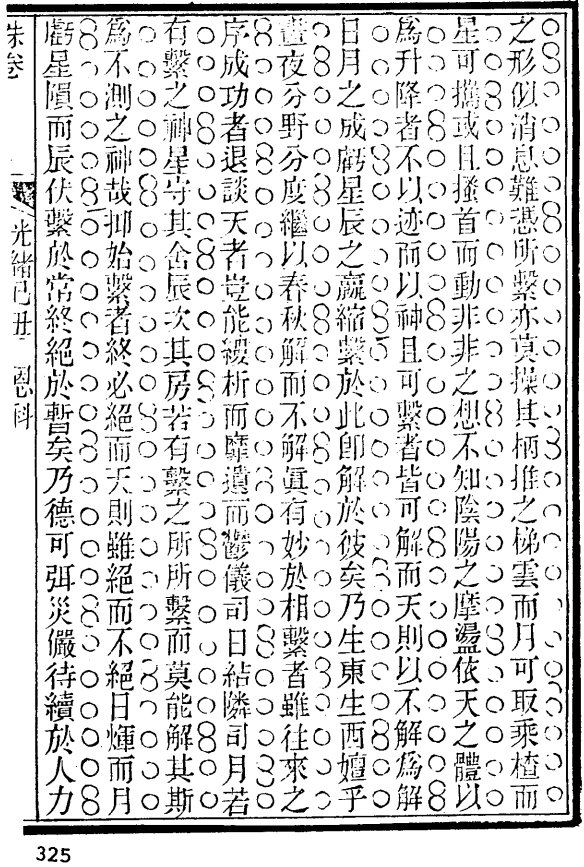 之形似消息難憑所繫亦莫操其柄推之梯雲而月可取乘楂而
星可擕或且搔首而動非非之想不知陰陽之摩盪依天之體以
爲升降者不以迹而以神且可繫者皆可解而天則以不解爲解
日月之成虧星辰之贏縮繫於此卽解於彼矣乃生東生西嬗乎
晝夜分野分度繼以春秋解而不解眞有妙於相繫者雖往來之
序成功者退談天者豈能縷析而靡遺而鬱儀司日結隣司月若
有繫之神星守其舍辰次其房若有繫之所所繫而莫能解其斯
爲不測之神哉抑始繫者終必絕而天則雖絕而不絕日煇而月
虧星隕而辰伏繫於常終絕於暫矣乃德可弭災儼待續於人力
硃卷
光緒己丑 恩科
325